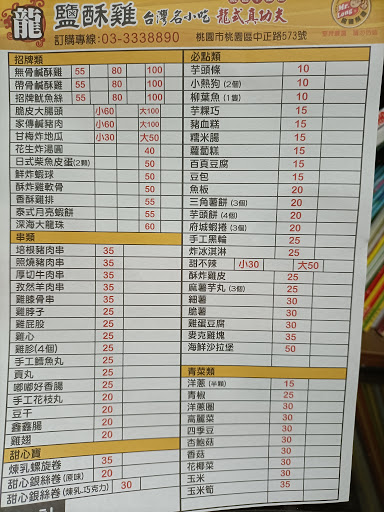 龍 鹽酥雞 台灣名小吃 龍式真功夫
訂購專線:03-3338890 桃園市桃園區中正路573號
Mr. Long
招牌類
無骨鹹酥雞 55 80 100
帶骨鹹酥雞 55 80 100
招牌魷魚絲 55 80 100
脆皮大腸頭 小60 大100
家傳鹹豬肉 小60 大100
甘梅炸地瓜 小30 大50
花生炸湯圓 40
日式柴魚皮蛋(2顆) 50
鮮炸蝦球 50
酥炸雞軟骨 50
香酥雞排 55
泰式月亮蝦餅 55
深海大龍珠 60
串類
培根豬肉串 35
照燒豬肉串 35
厚切牛肉串 35
孜然羊肉串 35
雞膝骨串 35
雞脖子 25
雞屁股 25
雞心 25
雞胗(4個) 25
手工鱈魚丸 25
貢丸 25
嘟嘟好香腸 20
手工花枝丸 30
豆干 20
鑫鑫腸 20
雞翅 20
甜心寶
煉乳螺旋卷 35
甜心銀絲卷(原味) 20
甜心銀絲卷(煉乳.巧克力) 30
必點類
芋頭條 10
小熱狗(2個) 10
柳葉魚(1隻) 10
芋粿巧 15
豬血糕 15
糯米腸 15
蘿蔔糕 15
百頁豆腐 15
豆包 15
魚板 20
三角薯餅(3個) 20
芋頭餅(4個) 20
府城蝦捲(3個) 20
手工黑輪 25
炸冰淇淋 25
甜不辣 小30 大50
酥炸雞皮 25
麻薯芋丸(3個) 25
細薯 30
脆薯 30
雞蛋豆腐 30
麥克雞塊 35
海鮮沙拉堡 50
青菜類
洋蔥(半顆) 15
青椒 25
洋蔥圈 30
高麗菜 30
四季豆 30
杏鮑菇 30
香菇 30
花椰菜 30
玉米 30
玉米筍 35